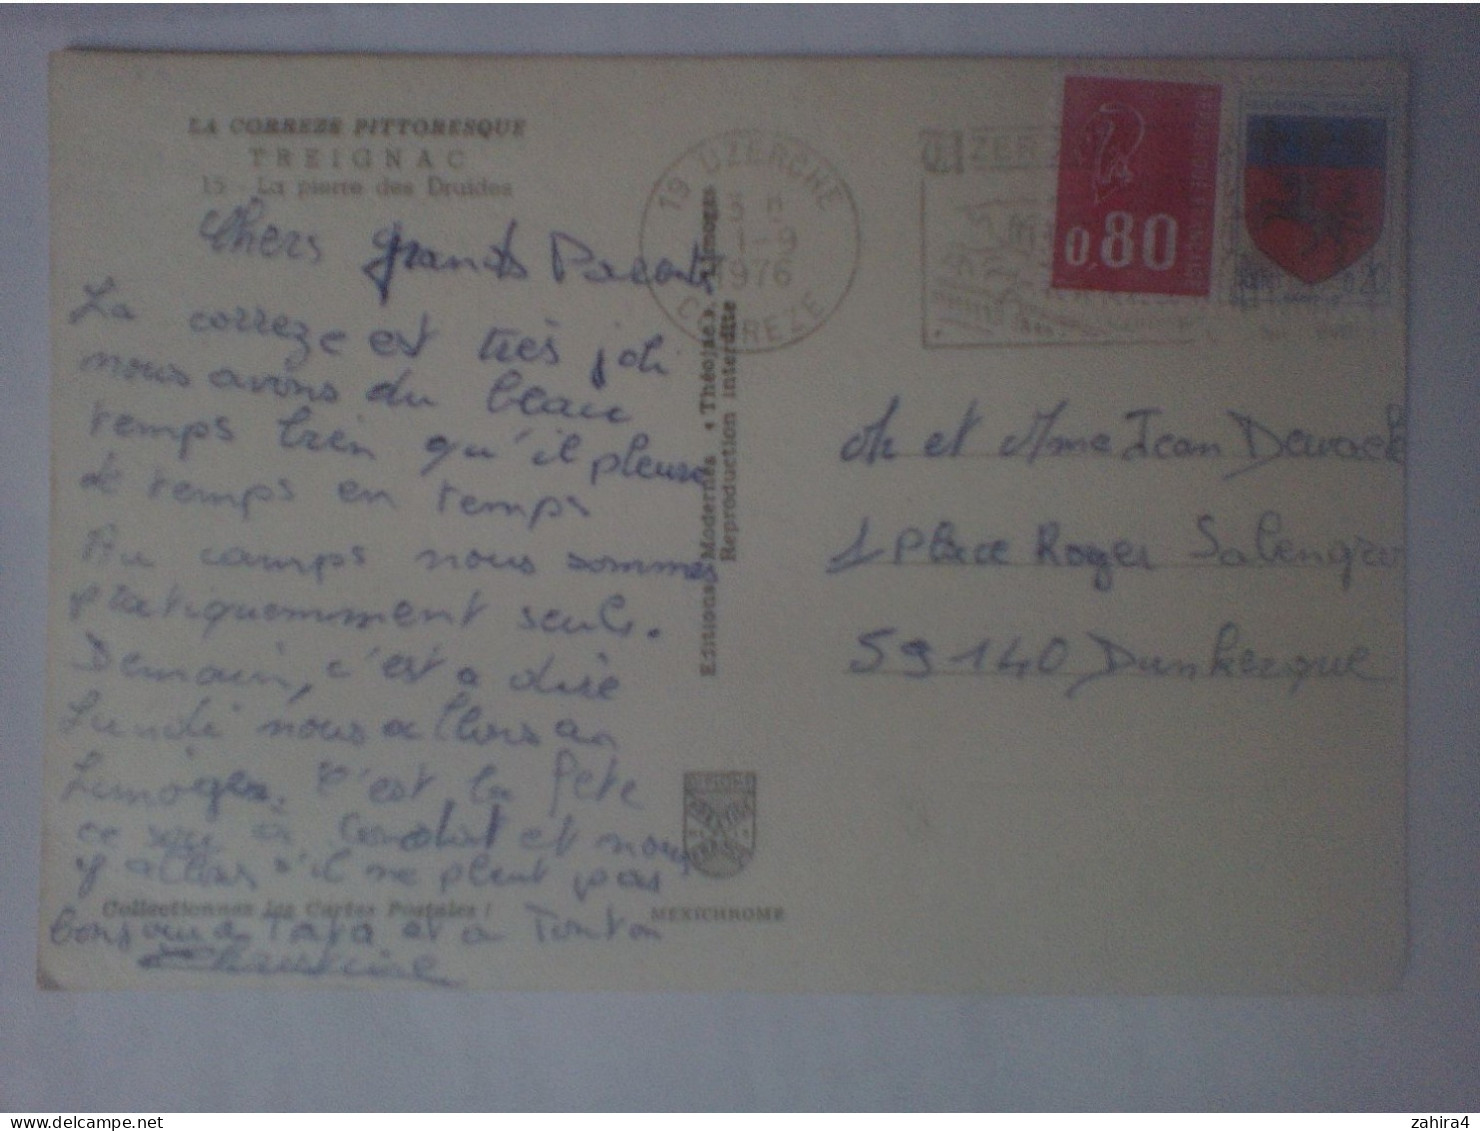 LA CORREZE PITTORESQUE
TREIGNAC
15 - La pierre des Druides
Chers grands Parents
La correze est très joli
nous avons du beau
temps bien qu'il pleuve
de temps en temps
Au camps nous sommes
pratiquemment seuls.
Demain, c'est a dire
Lundi nous allons a
Limoges. C'est la fete
ce soir a et nous
y allons s'il ne pleut pas
Collectionnez les Cartes Postales !
bonjour a Tata et a Tonton
Christine
Editions Modernes « Théojac », Limoges
Reproduction interdite
MEXICHROME
19 UZERCHE
1-9
1976
CORREZE
UZER
0,80
Mr et Mme Jean
1 Place Roger Salengro
59140 Dunkerque
zahira4